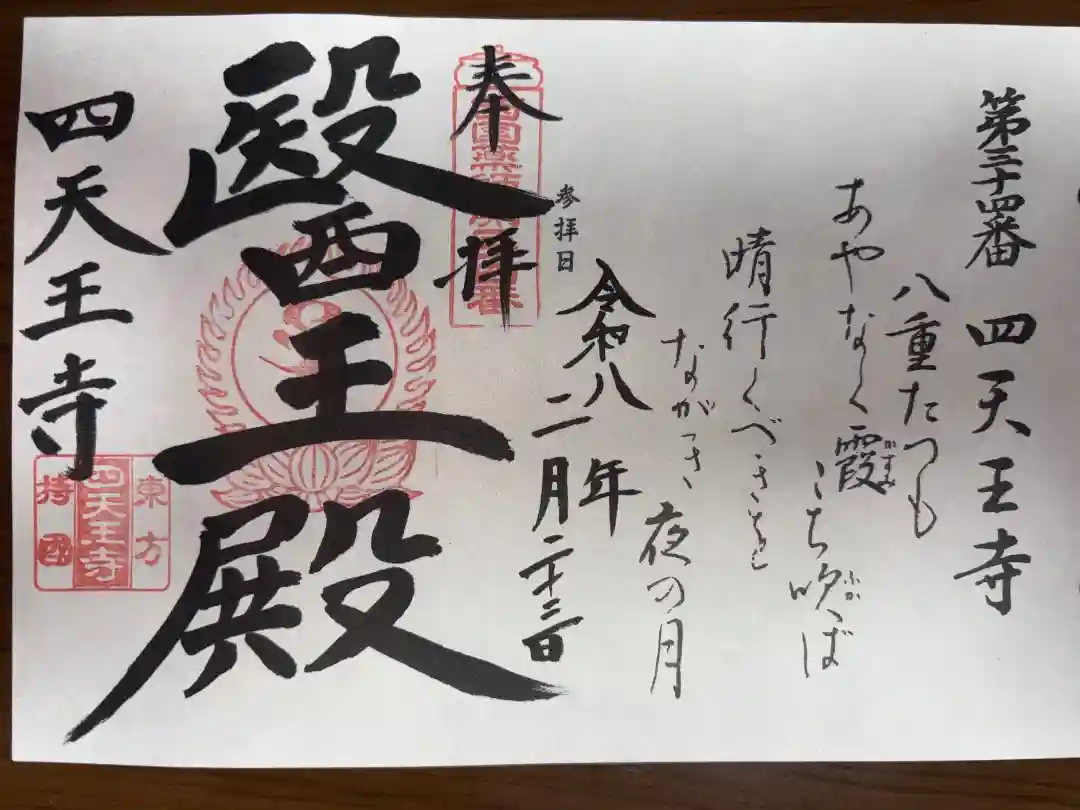 第三十四番 四天王寺
八重たつも
あやなく霞かすみ
こち吹ふかば
晴行くべきを
ながつき
夜の月
参拝日
令和八年
二月二十三日
奉拝
醫王殿
四天王寺
東方
四天王寺
持国